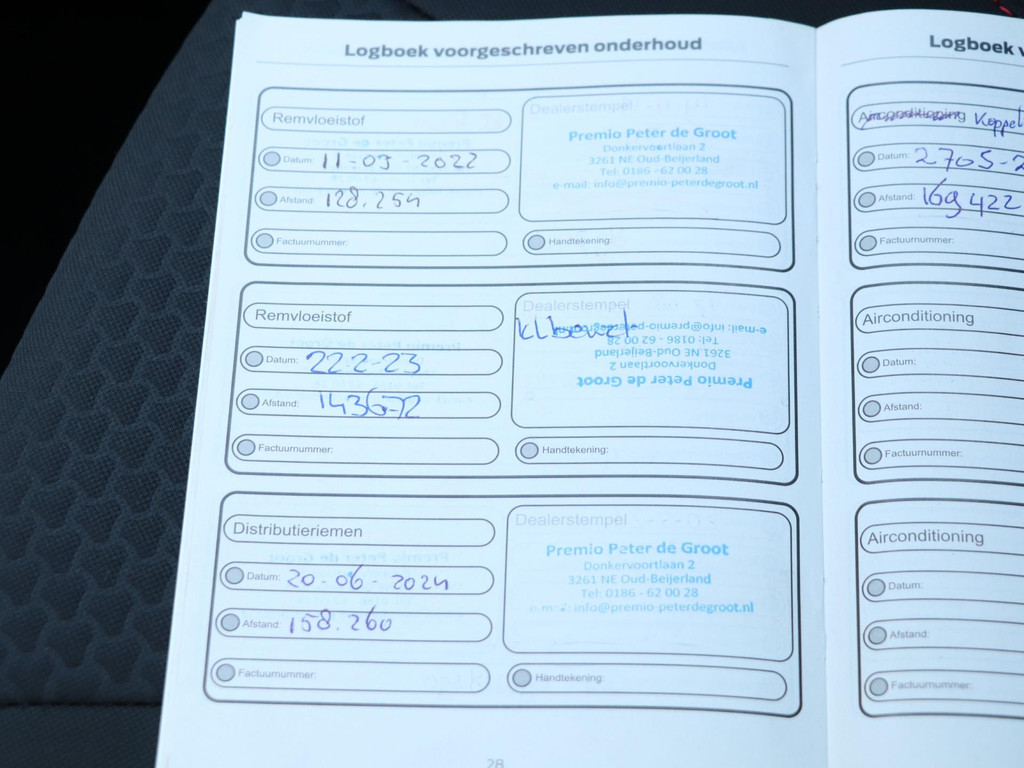 Logboek voorgeschreven onderhoud
Remvloeistof
Datum: 11-05-2022
Afstand: 128.254
Factuurnummer:
Dealerstempel
Premio Peter de Groot
Donkervoortlaan 2
3261 NE Oud-Beijerland
Tel: 0186 - 62 00 28
e-mail: info@premio-peterdegroot.nl
Handtekening:
Remvloeistof
Datum: 22-2-23
Afstand: 143672
Factuurnummer:
Dealerstempel
Premio Peter de Groot
Donkervoortlaan 2
3261 NE Oud-Beijerland
Tel: 0186 - 62 00 28
e-mail: info@premio-peterdegroot.nl
Handtekening:
Distributieriemen
Datum: 20-06-2024
Afstand: 158.260
Factuurnummer:
Dealerstempel
Premio Peter de Groot
Donkervoortlaan 2
3261 NE Oud-Beijerland
Tel: 0186 - 62 00 28
e-mail: info@premio-peterdegroot.nl
Handtekening:
28
Logboek
Airconditioning Koppel
Datum: 2705-2
Afstand: 169422
Factuurnummer:
Airconditioning
Datum:
Afstand:
Factuurnummer:
Airconditioning
Datum:
Afstand:
Factuurnummer: